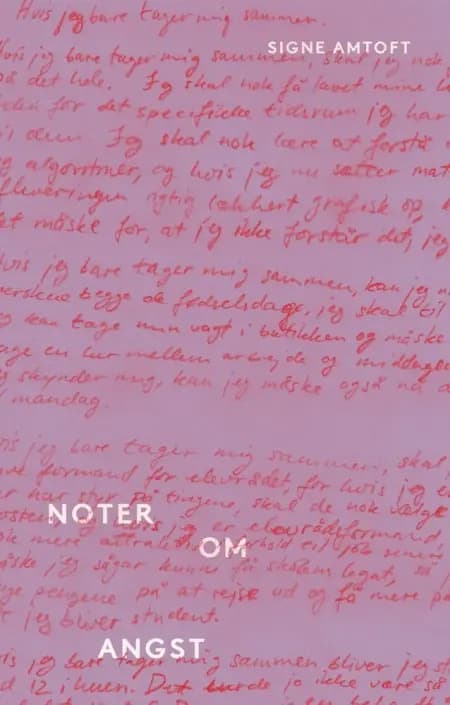 Hvis jeg bare tager mig sammen.
SIGNE AMTOFT
Hvis jeg bare tager mig sammen, skal jeg nok
på det hele. Jeg skal nok få lavet mine
for det specifikke tidsrum jeg har
Jeg skal nok lære at forstå
algoritmer, og hvis jeg nu sætter mat
afleveringen rigtig lækkert grafisk op,
det måske for, at jeg ikke forstår det, jeg
Hvis jeg bare tager mig sammen, kan jeg
begge de fødselsdage, jeg skal til
kan tage min vagt i butikken og måske
tage en lur mellem arbejde og
skynder mig, kan jeg måske også nå
mandag.
Hvis jeg bare tager mig sammen, skal
formand for elevrådet, for hvis jeg
har styr på tingene, skal de nok vælge
NOTER
jeg er elevrådsformand,
OM
mere
job
måske jeg sågar kunne få skolens legat, så
pengene på at rejse ud og få mere
jeg bliver student.
ANGST
Hvis jeg bare tager mig sammen, bliver jeg
12 i huen. Det burde jo ikke være så